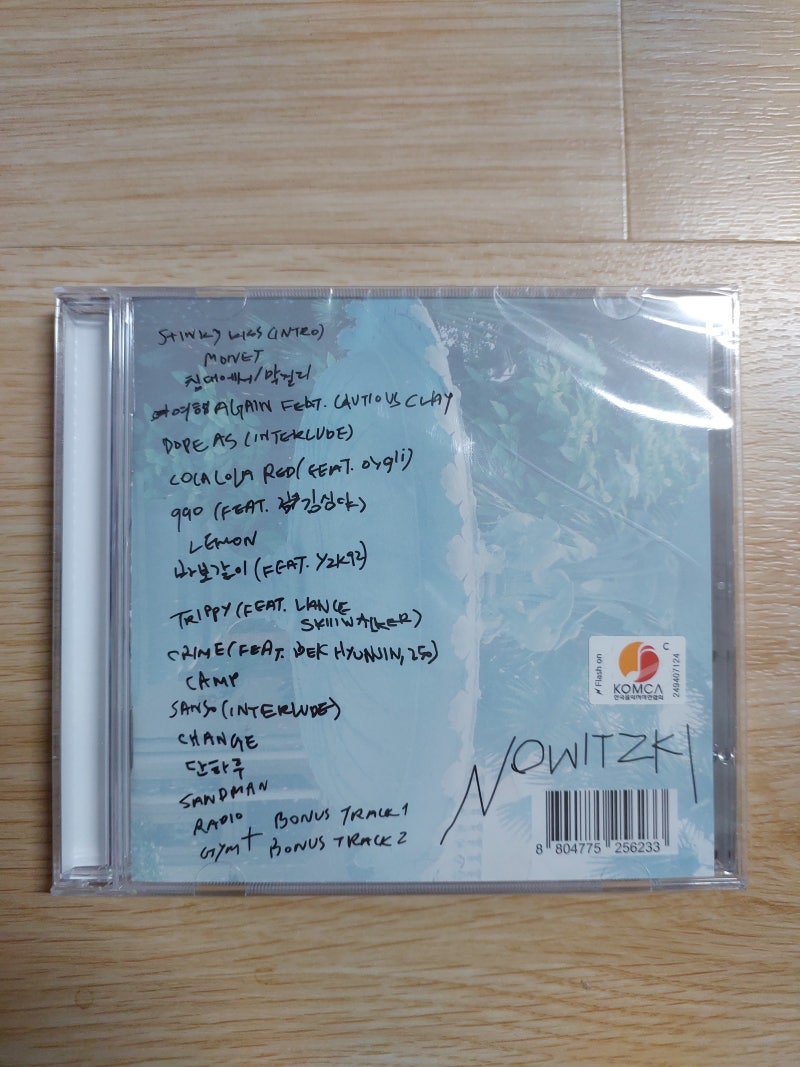 STINKY KISS (INTRO)
MONET
침대에서/막걸리
여행 AGAIN FEAT. CAUTIOUS CLAY
DOPE AS (INTERLUDE)
COCA COLA RED (FEAT. oygli)
990 (FEAT. 김심야)
LEMON
바보같이 (FEAT. YZK92)
TRIPPY (FEAT. LANCE
SKIIIWALKER)
CRIME (FEAT. BEK HYUNJIN, 250)
CAMP
SANSO (INTERLUDE)
CHANGE
단하루
SANDMAN
RADIO
GYM + BONUS TRACK 1
BONUS TRACK 2
NOWITZKI
Flash on
KOMCA
한국음악저작권협회
C
249407124
8 804775 256233